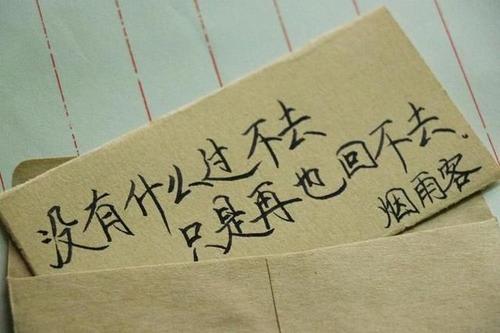 没有什么过不去
只是再也回不去.
烟雨客